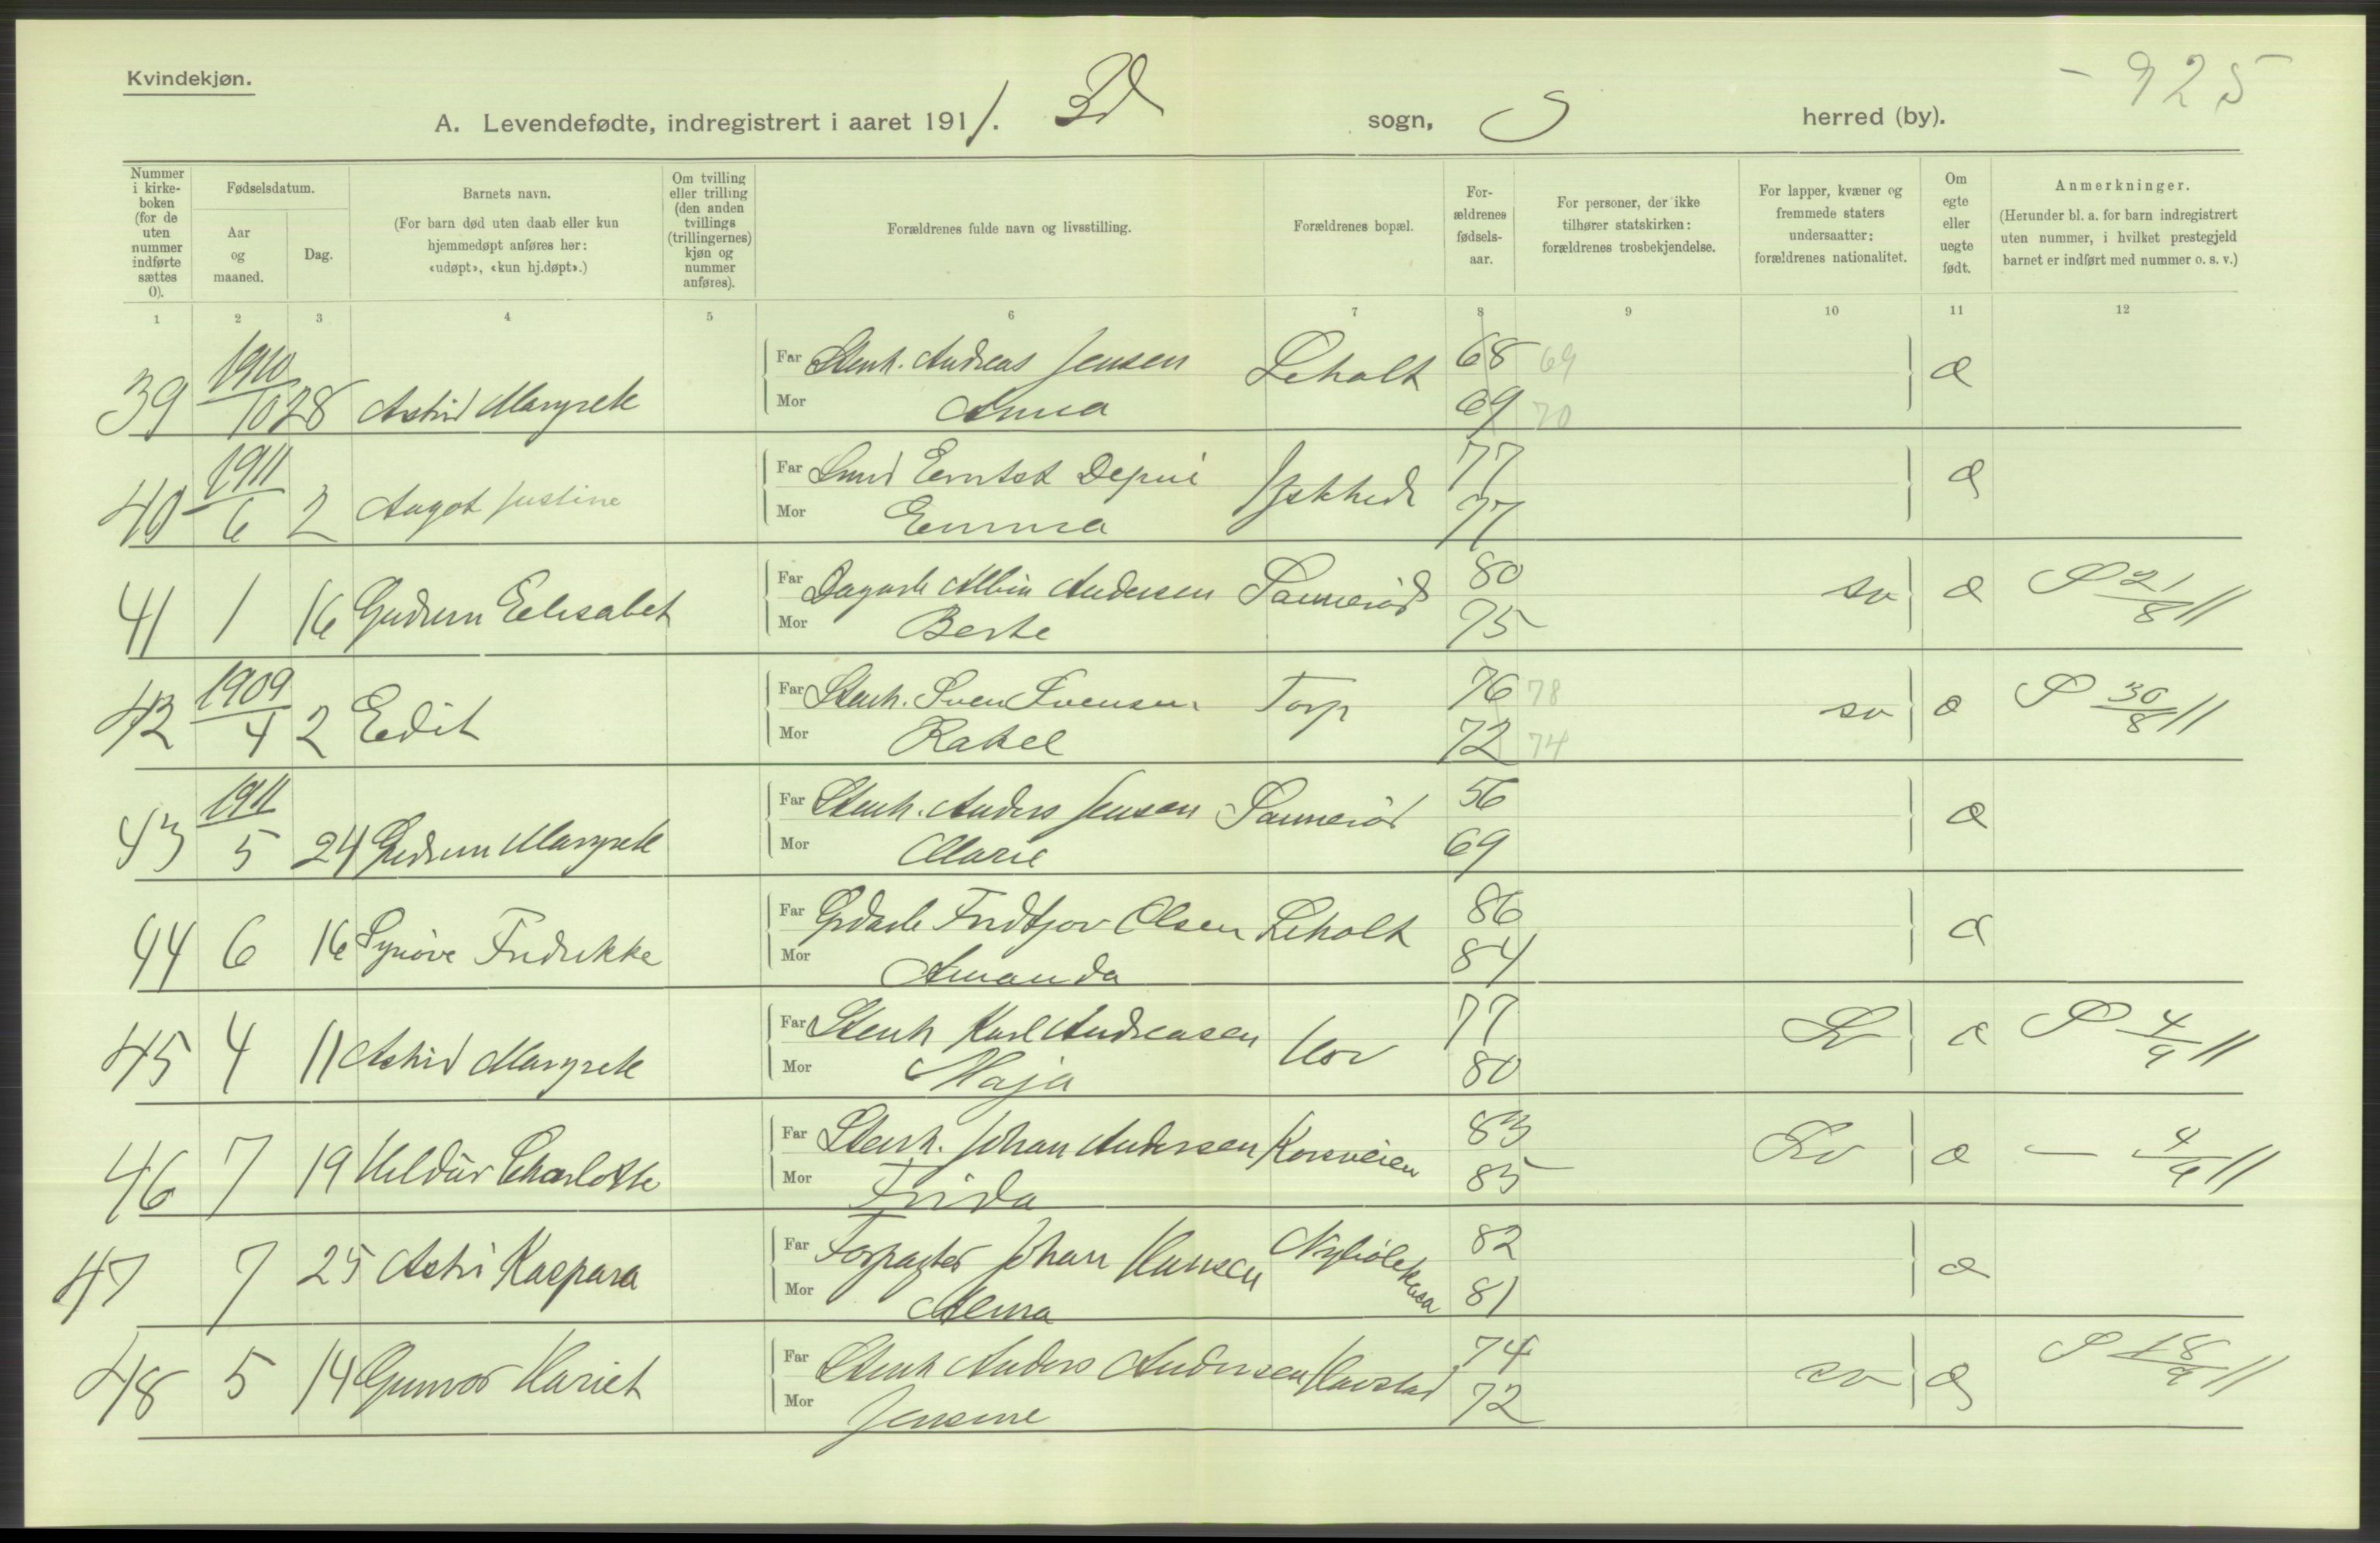 Kvindekjøn.
- 925
A. Levendefødte, indregistrert i aaret 1911. Id sogn, S herred (by).
Nummer i kirke-boken (for de uten nummer indførte sættes 0).
Fødselsdatum.
Aar og maaned.
Dag.
Barnets navn.
(For barn død uten daab eller kun hjemmedøpt anføres her: «udøpt», «kun hj.døpt».)
Om tvilling eller trilling (den anden tvillings (trillingernes) kjøn og nummer anføres).
Forældrenes fulde navn og livsstilling.
Forældrenes bopæl.
For-ældrenes fødsels-aar.
For personer, der ikke tilhører statskirken: forældrenes trosbekjendelse.
For lapper, kvæner og fremmede staters undersaatter: forældrenes nationalitet.
Om egte eller uegte født.
Anmerkninger.
(Herunder bl. a. for barn indregistrert uten nummer, i hvilket prestegjeld barnet er indført med nummer o. s. v.)
1 2 3 4 5 6 7 8 9 10 11 12
39 1910/10 28 Astrid Margrete Far Stenh. Andreas Jensen Leholt 68 69 æ
Mor Anna 69 70
40 1911/6 2 Aagot Justine Far 77 æ
Mor Emma 77
41 1 16 Gudrun Elisabet Far Dagarb Albin Andersen Sannerød 80 sv æ P 21/8 11
Mor Berte 75
42 1909/4 2 Edit Far Stenh. Sven Svensen Torp 76 78 sv æ P 30/8 11
Mor Rakel 72 74
43 1911/5 24 Gudrun Margrete Far Stenh. Anders Jensen Sannerød 56 æ
Mor Marie 69
44 6 16 Synøve Fredrikke Far Grdarb Fridtjov Olsen Leholt 86 æ
Mor Amanda 84
45 4 11 Astrid Margrete Far Stenh Karl Andreasen Hov 77 Sv æ P 4/9 11
Mor Maja 80
46 7 19 Hildur Charlotte Far Stenh. Johan Andersen Korsveien 83 Sv æ — 4/9 11
Mor Frida 85
47 7 25 Astri Kaspara Far Forpagter Johan Hansen 82 æ
Mor 81
48 5 14 Gunvor Hariet Far Stenh Anders Andersen Havstad 74 sv æ P 18/9 11
Mor Jensine 72